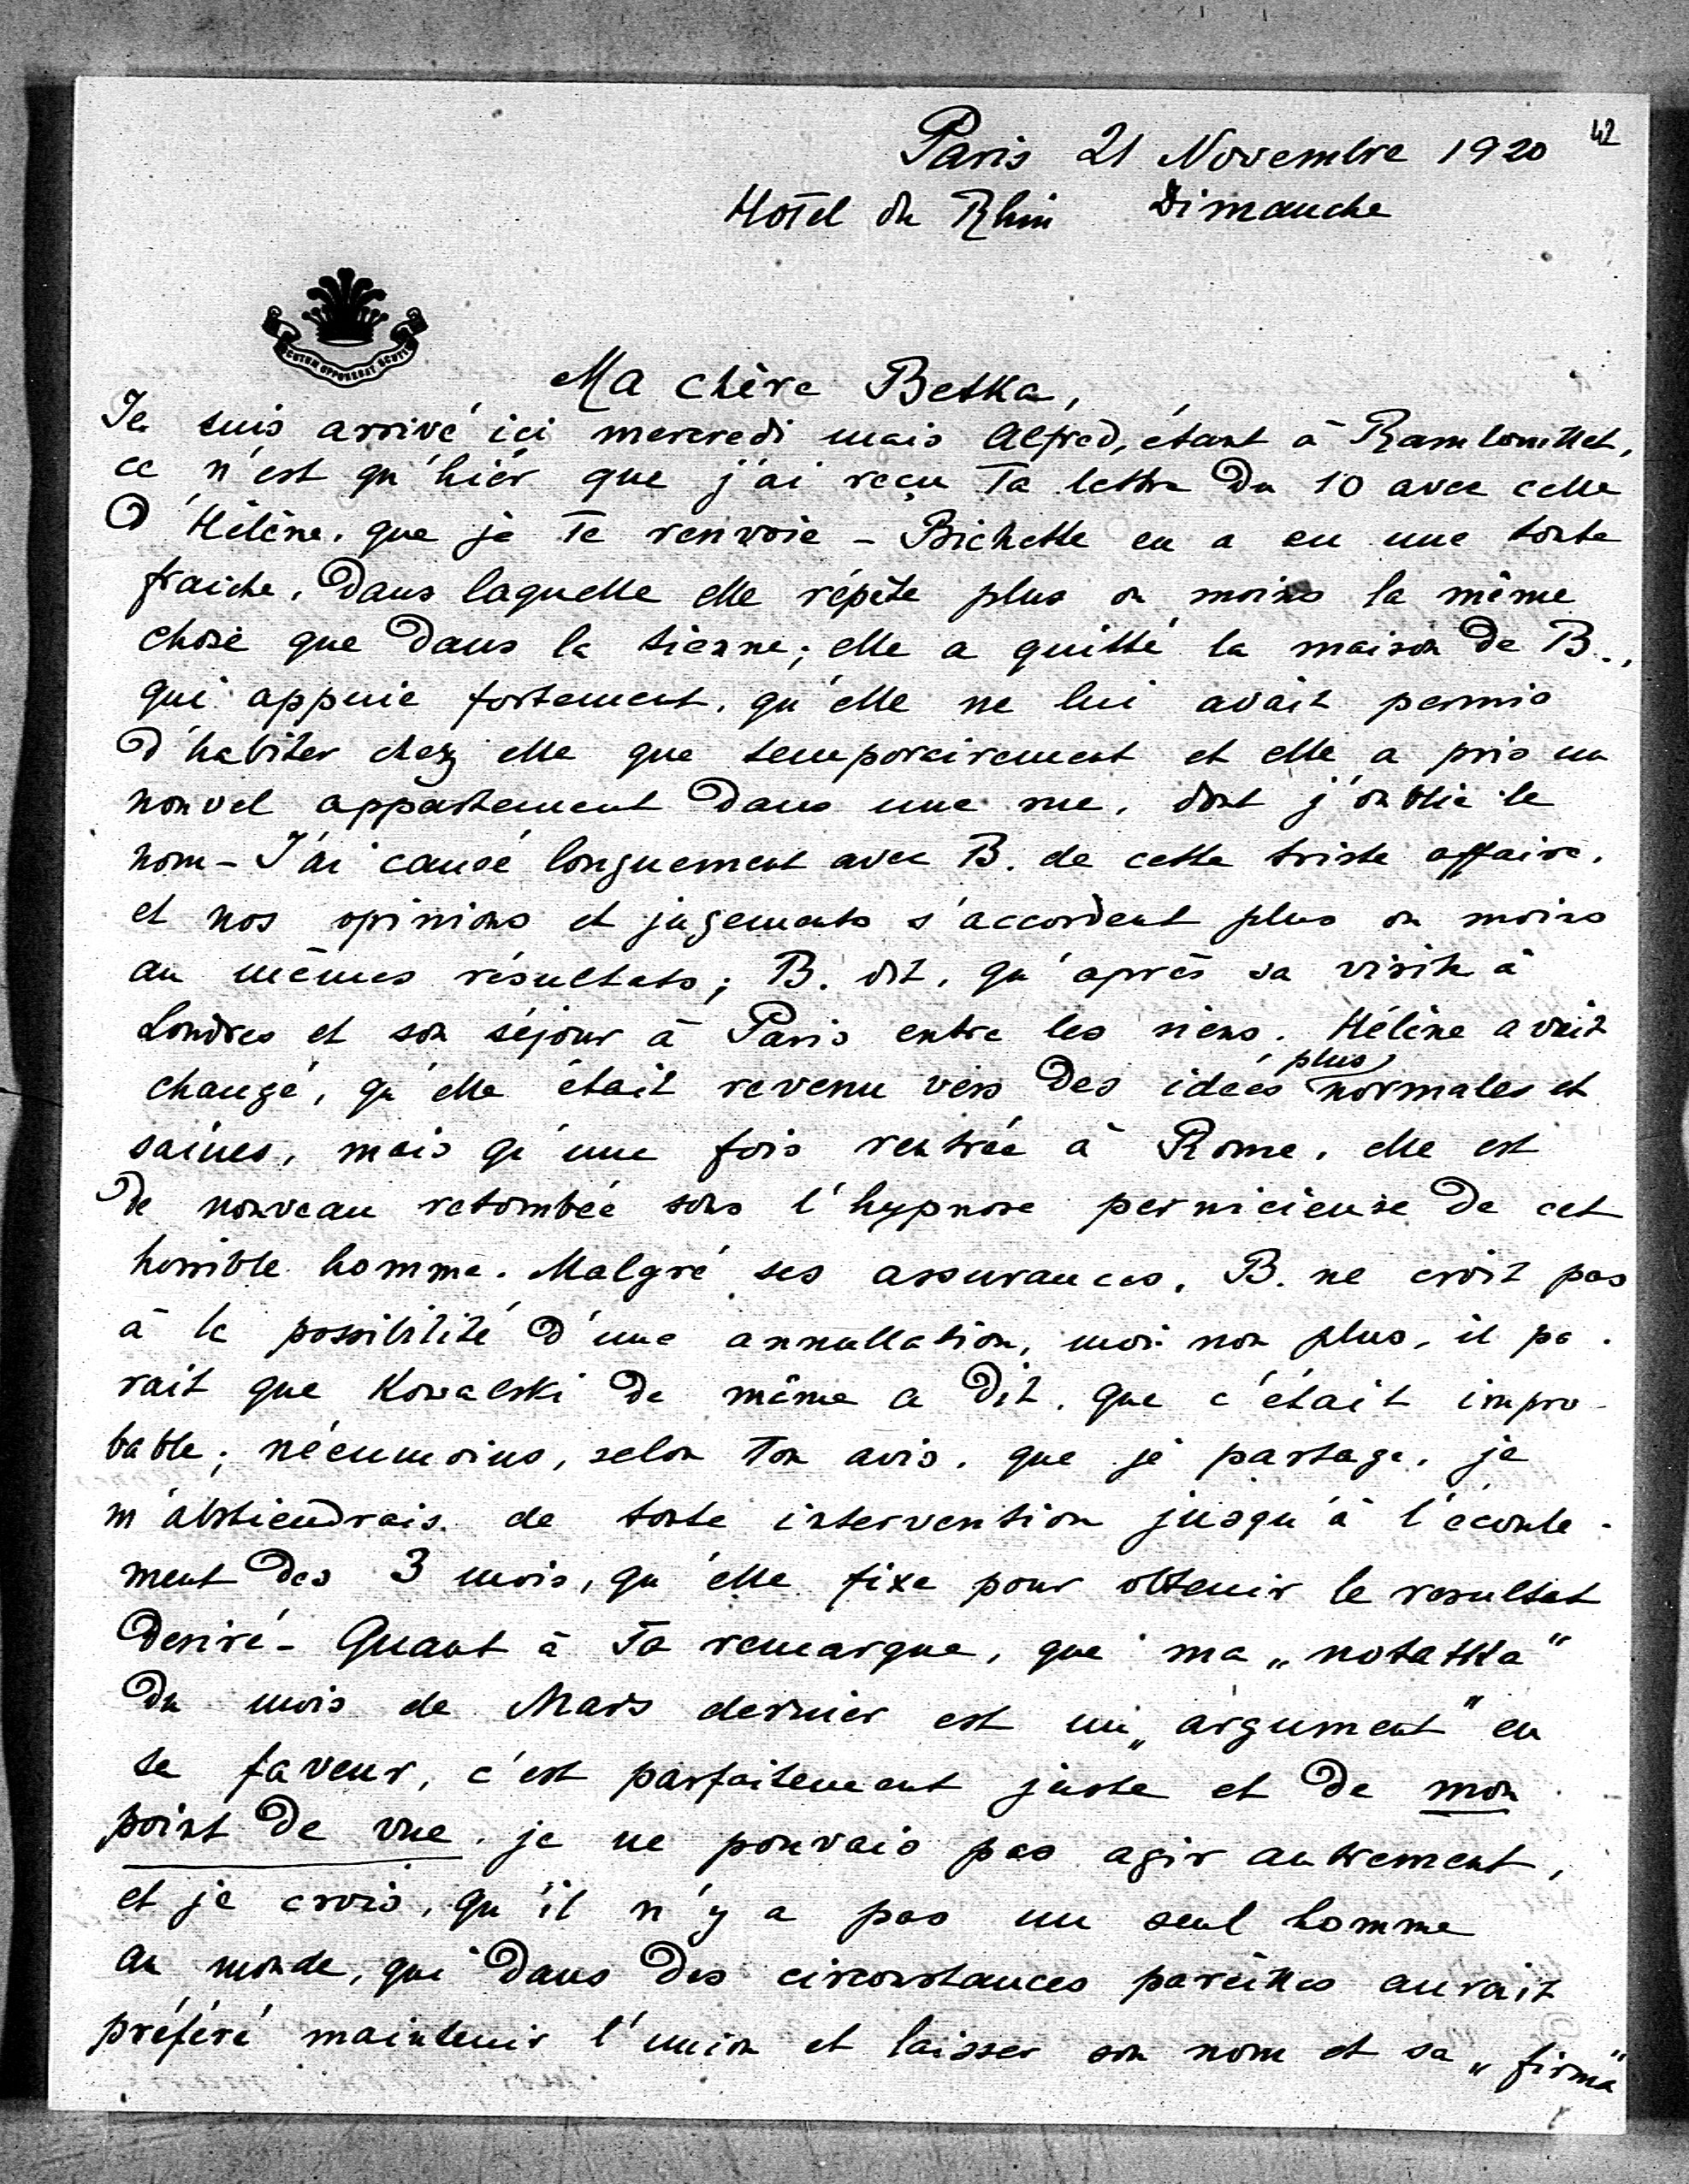 42
Paris 21 Novembre 1920
Hotel du Rhin Dimanche
Ma chère Betka,
Je suis arrivé ici mercredi mais Alfred, étant à Rambouillet,
ce n'est qu'hiér que j'ai reçu Ta lettre Du 10 avec celle
D'Hélène, que je Te renvoie – Bichette en a eu une toute
fraiche, Dans laquelle elle répète plus ou moins la même
chose que Dans la tienne; elle a quitté la maison De B.,
qui appuie fortement, qu'elle ne lui avait permis
D'habiter chez elle que temporairement et elle a pris un
nouvel appartement Dans une rue, dont j'oublie le
nom – J'ai causé longuement avec B. de cette triste affaire,
et nos opinions et jugements s'accordent plus ou moins
au mêmes résultats; B. dit, qu'après sa visite à
Londres et son séjour à Paris entre les siens, Hélène avait
changé, qu'elle était revenu vers Des idées plus normales et
saines, mais qu'une fois rentrée à Rome, elle est
De nouveau retombée sous l'hypnose pernicieuse De cet
horrible homme. Malgré ses assurances, B. ne croit pas
à la possibilité D'une annullation, moi non plus, il pa-
rait que Kowalski De même a Dit, que c'était impro-
bable; néenmoins, selon Ton avis, que je partage, je
m'abstiendrais de toute intervention jusqu'à l'écoule-
ment Des 3 mois, qu'elle fixe pour obtenir le resultat
Desiré – Quant à Ta remarque, que ma „notatka"
Du mois de Mars dernier est un „argument" en
sa faveur, c'est parfaitement juste et De mon
point De vue, je ne pouvais pas agir autrement,
et je crois, qu'il n'y a pas un seul homme
au monde, qui Dans Des circonstances pareilles aurait
préféré maintenir l'union et laisser son nom et sa „firma"